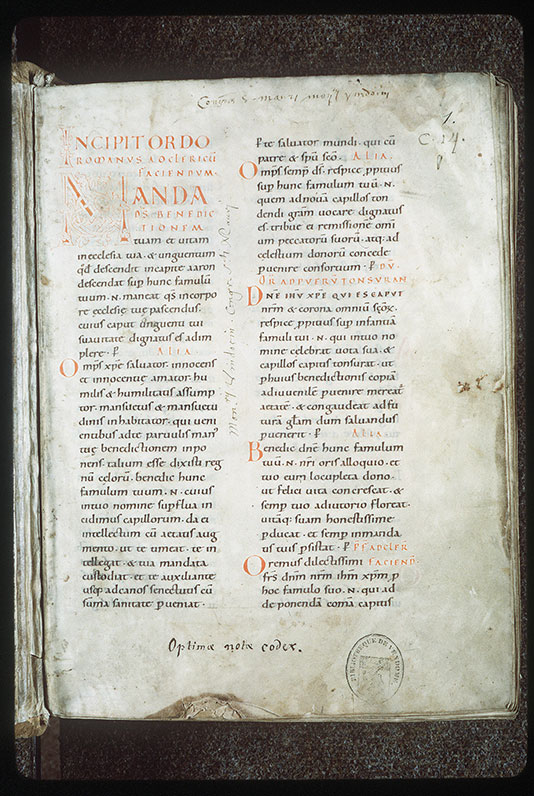 1.
C. 14.
INCIPIT ORDO
ROMANUS AD CLERICŪ
FACIENDUM.
MANDA
DS BENEDIC
TIONEM
tuam et uitam
in ecclesia tua. & unguentum
qđ descendit in capite aaron
descendat sup hunc famulū
tuum. N. maneat qs in corpo
re ecclesię tuę pascendus.
cuius caput unguenti tui
suauitate dignatus es adim
plere. P ALIA.
Omps xpe saluator innocens
et innocentię amator. hu
milis & humilitatis assump
tor. mansuetus & mansuetu
dinis inhabitator. qui ueni
entibus ad te paruulis man
tuę benedictionem inpo
nens. talium esse dixisti reg
nū celorū. benedic hunc
famulum tuum. N. cuius
in tuo nomine supflua in
cidimus capillorum. da ei
intellectum cū aetatis aug
mento. ut te timeat. te in
tellegat. & tua mandata
custodiat. et te auxiliante
usq; ad canos senectutis cū
sūma sanitate pueniat.
P te saluator mundi. qui cū
patre & spū sco. ALIA.
Omps semp ds. respice ppitius
sup hunc famulum tuū. N.
quem ad nouā capillos ton
dendi gram uocare dignatus
es. tribue ei remissionē omī
um peccatorū suorū. atq; ad
celestium donorū concede
puenire consortium. P
OR AD PUERŪ TONSURAN
Dne ihu xpe qui es caput
nrm & corona omniū scox.
respice ppitius sup infantiā
famuli tui. N. qui in tuo no
mine celebrat uota sua. &
capillos capitis tonsurat. ut
p huius benedictionis copiā
ad iuuenilē puenire mereat
aetatē. & congaudeat ad fu
turā glam dum saluandus
puenerit. P ALIA.
Benedic dne hunc famulum
tuū. N. nri oris alloquio. et
tuo eum locupleta dono.
ut felici uita concrescat. &
semp tuo adiutorio floreat.
uitāq; suam honestissime
pducat. et semp in manda
tis tuis psistat. P PF AD CLER
Oremus dilectissimi FACIEND
frs dnm nrm ihm xpm. p
hoc famulo suo. N. qui ad
deponendā comā capitis
Optimæ notæ codex.
BIBLIOTHEQUE DE VENDOME